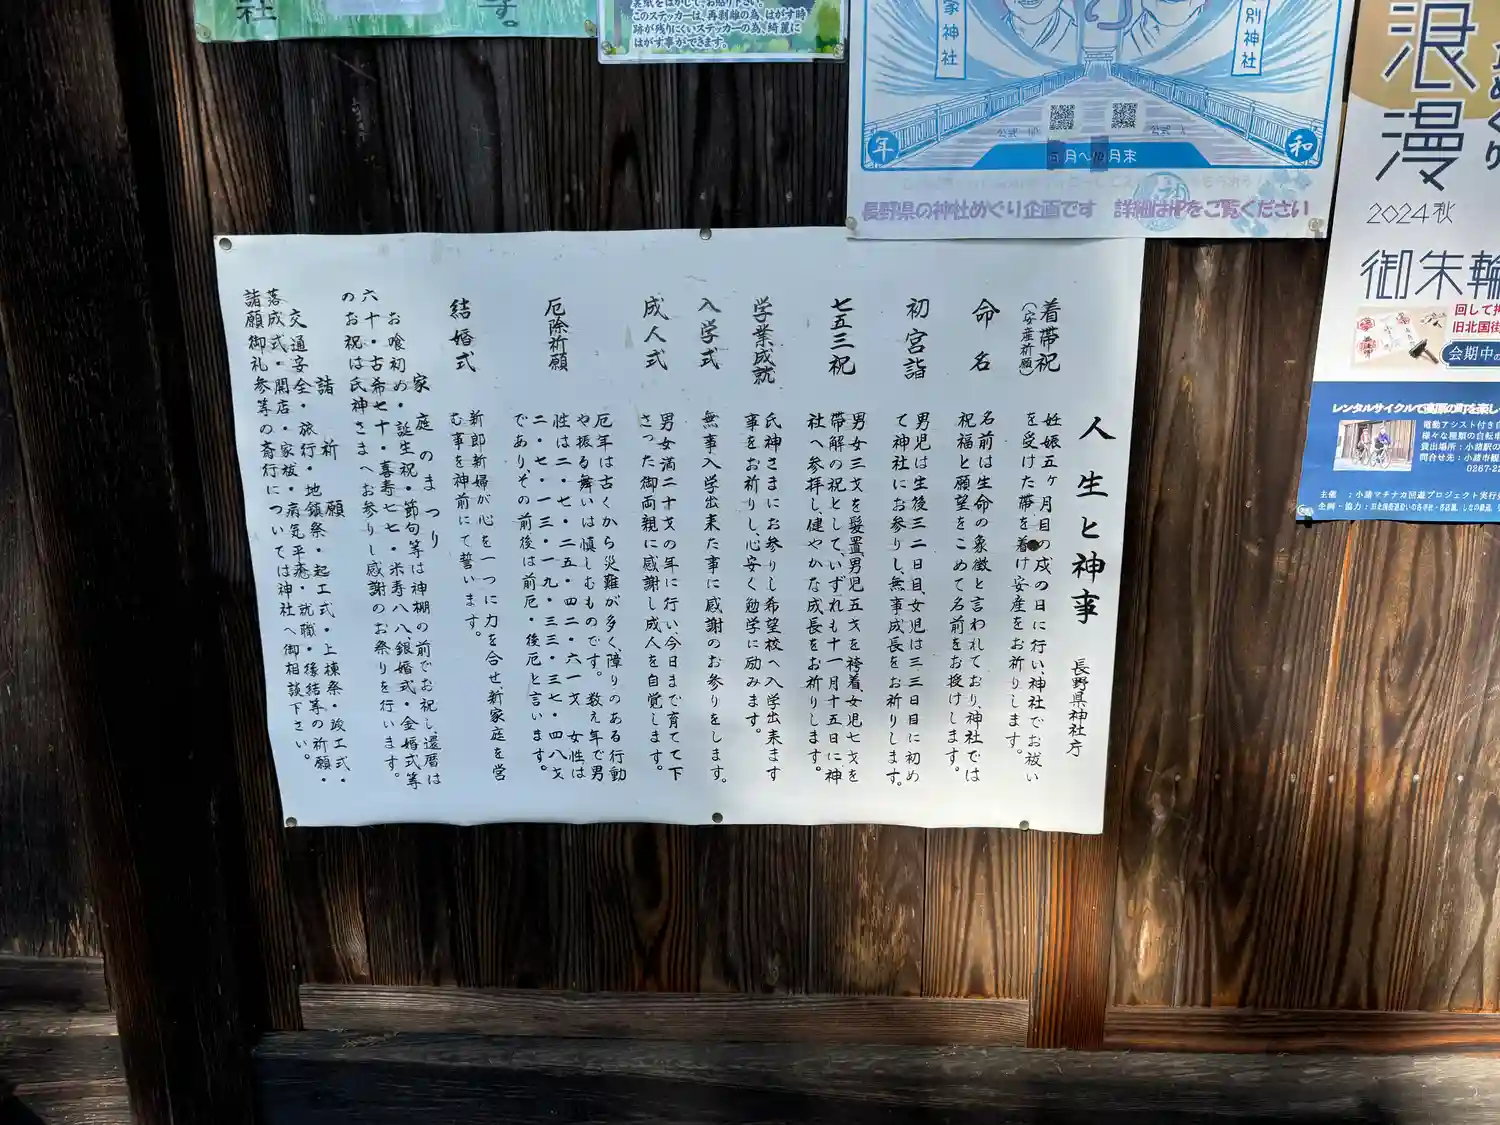 社
す。
裏紙をはがして、お貼り下さい。
このステッカーは、再剥離の為、はがす時
跡が残りにくいステッカーの為、綺麗に
はがす事ができます。
家神社
別神社
年
和
公式
公式
月~10月末
長野県の神社めぐり企画です 詳細はHPをご覧ください
浪漫
めぐり
2024秋
御朱輪
回して押
旧北国街
会期中の
レンタルサイクルで高原の町を楽し
電動アシスト付き自
様々な種類の自転車
貸出場所:小諸駅の
問合せ先:小諸市観
0267-22
主催 :小諸マチナカ回遊プロジェクト実行
企画・協力:
人生と神事
長野県神社庁
着帯祝
(安産祈願)
妊娠五ヶ月目の戌の日に行い、神社でお祓い
を受けた帯を着け安産をお祈りします。
命名
名前は生命の象徴と言われており、神社では
祝福と願望をこめて名前をお授けします。
初宮詣
男児は生後三二日目、女児は三三日目に初め
て神社にお参りし、無事成長をお祈りします。
七五三祝
男女三才を髪置、男児五才を袴着、女児七才を
帯解の祝として、いずれも十一月十五日に神
社へ参拝し、健やかな成長をお祈りします。
学業成就
氏神さまにお参りし希望校へ入学出来ます
事をお祈りし、心安く勉学に励みます。
入学式
無事入学出来た事に感謝のお参りをします。
成人式
男女満二十才の年に行い今日まで育てて下
さった御両親に感謝し成人を自覚します。
厄除祈願
厄年は古くから災難が多く、障りのある行動
や振る舞いは慎しむものです。数え年で男
性は二・七・二五・四二・六一才 女性は
二・七・一三・一九・三三・三七・四八才
であり、その前後は前厄・後厄と言います。
結婚式
新郎新婦が心を一つに力を合せ新家庭を営
む事を神前にて誓います。
家庭のまつり
お喰初め・誕生祝・節句等は神棚の前でお祝し、還暦は
六十・古希七十・喜寿七七・米寿八八、銀婚式・金婚式等
のお祝は氏神さまへお参りし感謝のお祭りを行います。
諸祈願
交通安全・旅行・地鎮祭・起工式・上棟祭・竣工式・
落成式・開店・家祓・病気平癒・就職・後結等の祈願・
諸願御礼参等の斎行については神社へ御相談下さい。